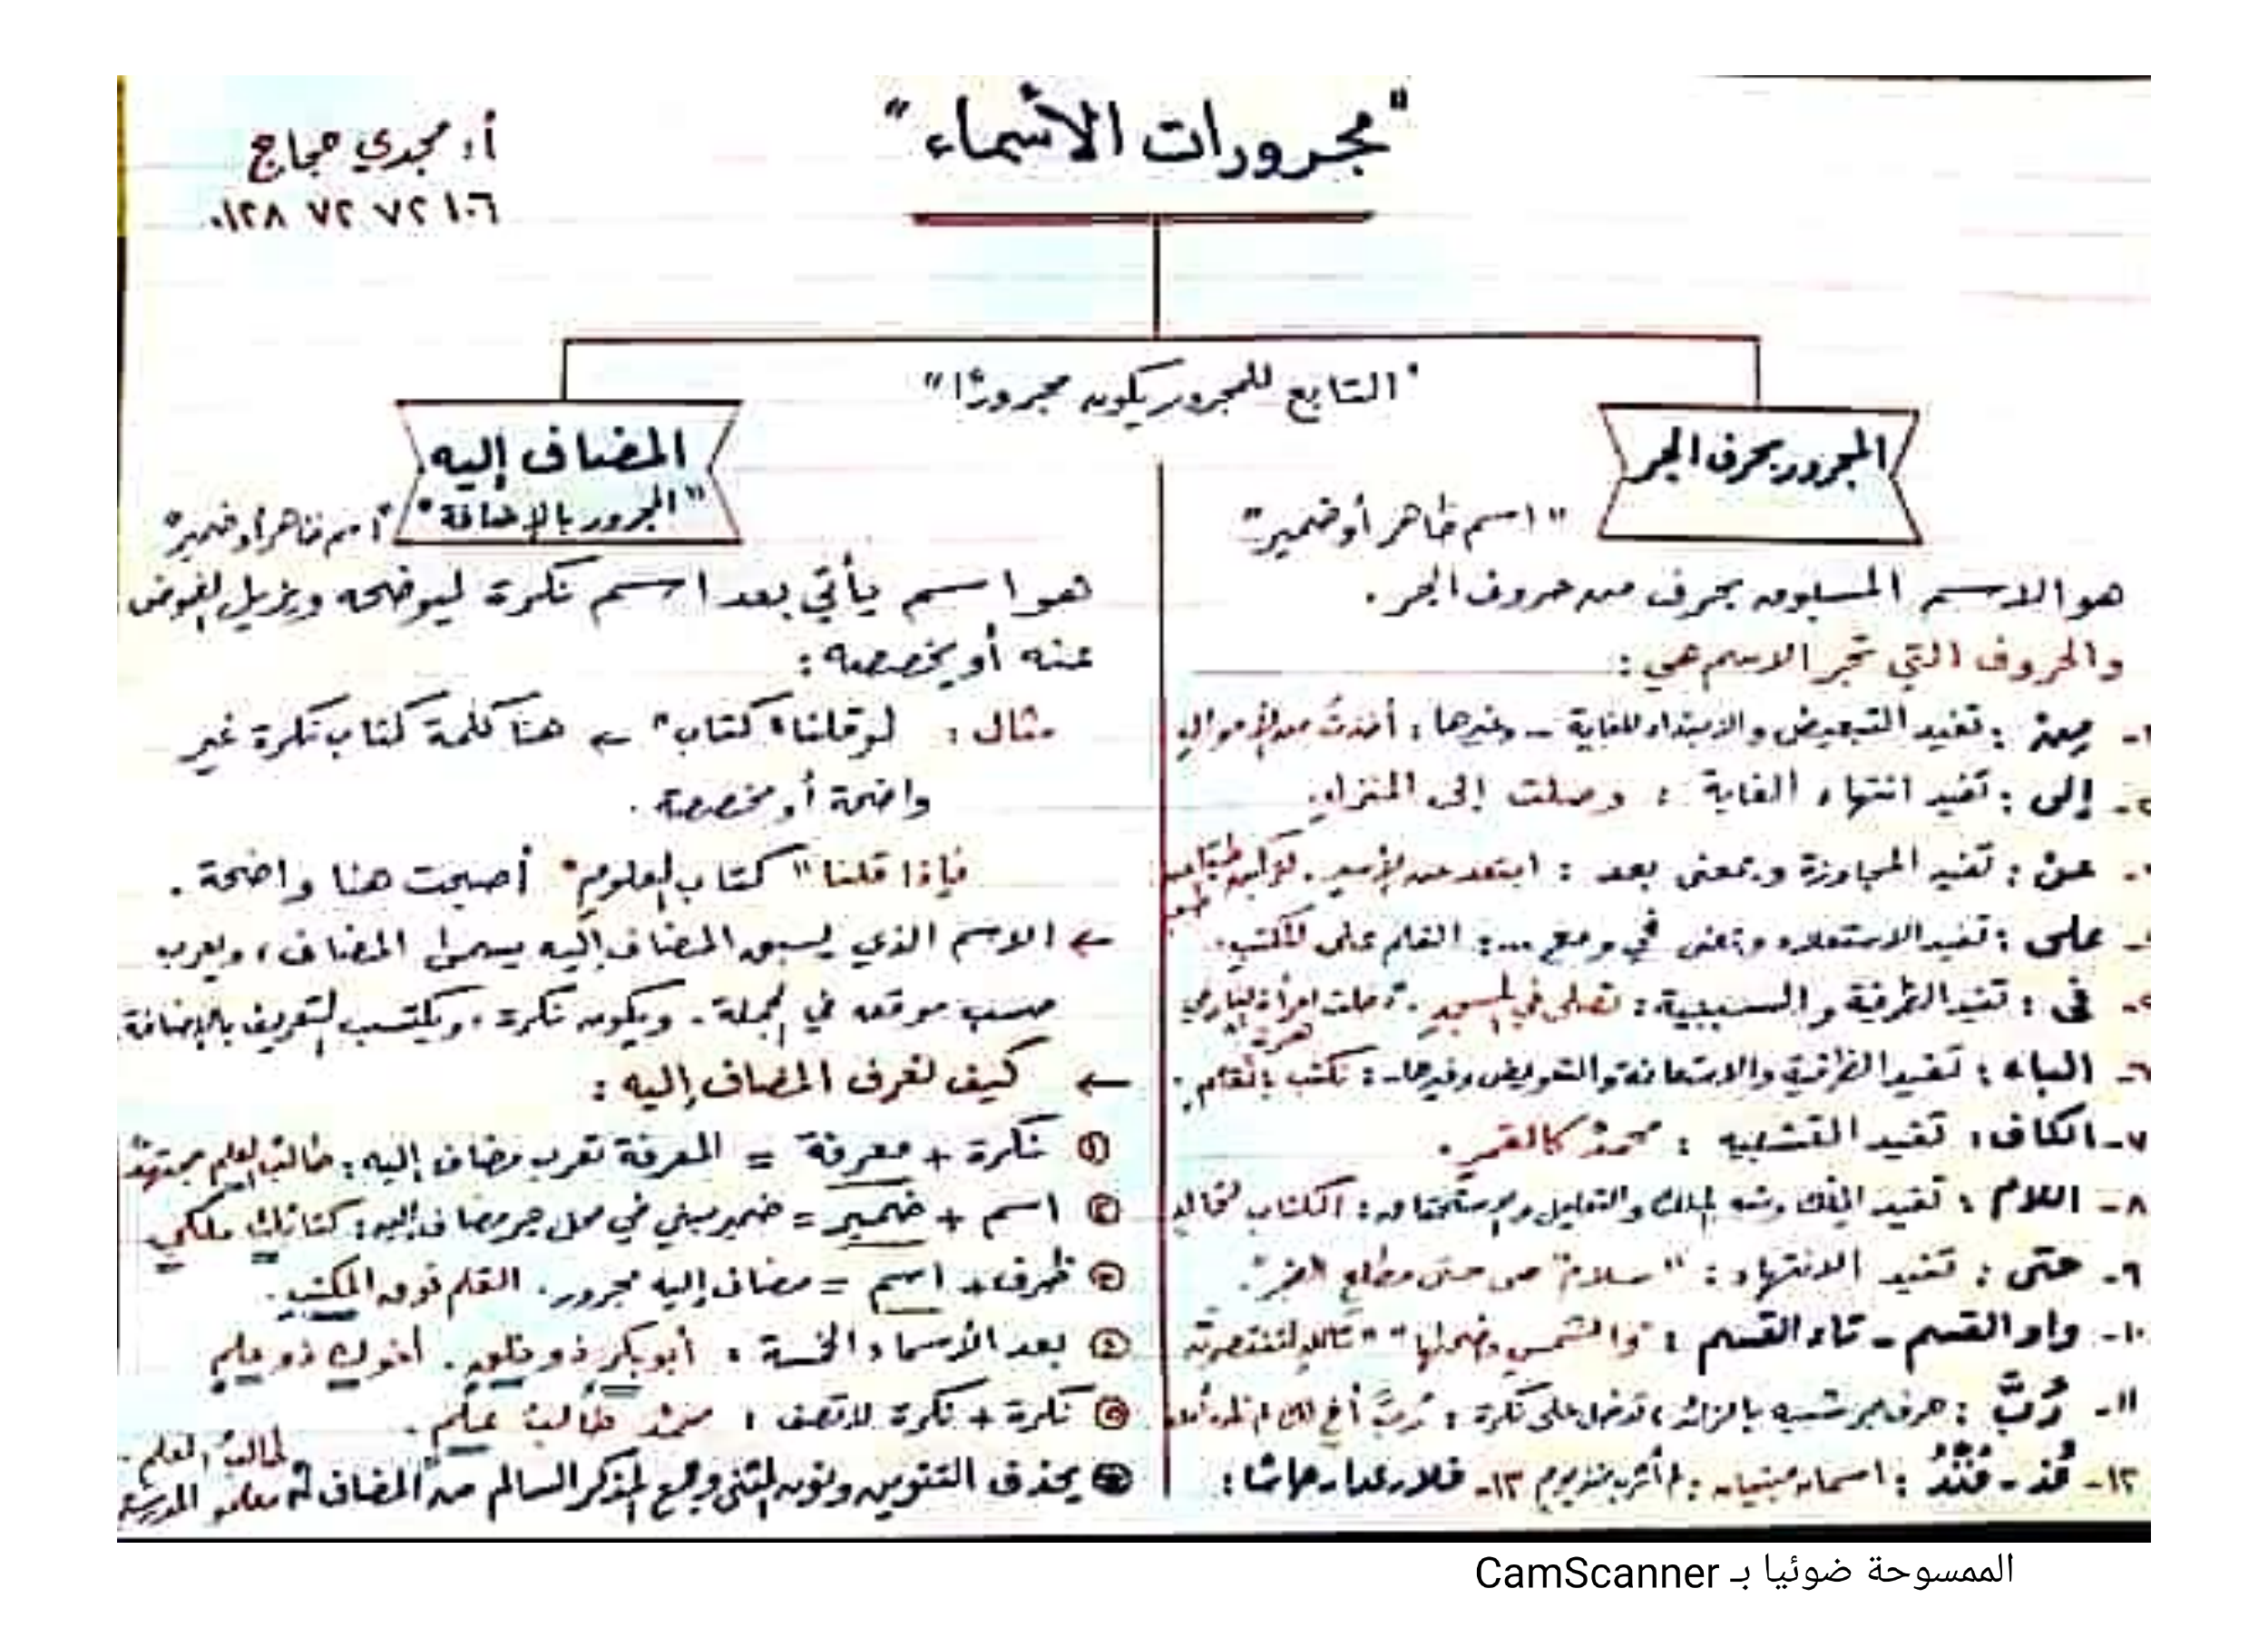 "مجرورات الأسماء"
أ: مجدي حجاج
٠١٢٨ ٧٢ ٧٢ ١٠٦
"التابع للمجرور يكون مجرورًا"
المجرور بحرف الجر
"اسم ظاهر أو ضمير"
هو الاسم المسبوق بحرف من حروف الجر.
والحروف التي تجر الاسم هي:
١- مِنْ: تفيد التبعيض والابتداء للغاية - وغيرها: أخذتُ من الأموالِ
٢- إلى: تفيد انتهاء الغاية: وصلت إلى المنزلِ.
٣- عنْ: تفيد المجاوزة وبمعنى بعد: ابتعد عن الأسدِ. لتركبن طبقًا عن طبق
٤- على: تفيد الاستعلاء وبمعنى في ومع ...: القلم على المكتبِ.
٥- في: تفيد الظرفية والسببية: تصلى في المسجدِ. "دخلت امرأة النار في هرة"
٦- الباء: تفيد الظرفية والاستعانة والتعويض وغيرها: نكتب بالقلمِ.
٧- الكاف: تفيد التشبيه: محمدٌ كالقمرِ.
٨- اللام: تفيد الملك وشبه الملك والتعليل والاستحقاق: الكتاب لخالدٍ
٩- حتى: تفيد الانتهاء: "سلامٌ هي حتى مطلعِ الفجر".
١٠- واو القسم - تاء القسم: "والشمسِ وضحاها"
١١- رُبَّ: حرف جر شبيه بالزائد، تدخل على نكرة: رُبَّ أخٍ لك لم تلده أمك
١٢- مُذ - مُنْذُ: اسمان مبنيان: ١٣- خلا، عدا، حاشا:
المضاف إليه
"المجرور بالإضافة"
"اسم ظاهر أو ضمير"
هو اسم يأتي بعد اسم نكرة ليوضحه ويزيل الغموض
عنه أو يخصصه:
مثال: لو قلنا "كتاب" ← هنا كلمة كتاب نكرة غير
واضحة أو مخصصة.
فإذا قلنا "كتاب العلومِ" أصبحت هنا واضحة.
← الاسم الذي يسبق المضاف إليه يسمى المضاف، ويعرب
حسب موقعه في الجملة. ويكون نكرة، ويكتسب التعريف بالإضافة
← كيف نعرف المضاف إليه:
① نكرة + معرفة = المعرفة تعرب مضاف إليه: طالبُ العلمِ مجتهدٌ
② اسم + ضمير = ضمير مبني في محل جر مضاف إليه:
③ ظرف + اسم = مضاف إليه مجرور. القلم فوق المكتبِ.
④ بعد الأسماء الخمسة: أبو بكرٍ ذو خلقٍ. أخوك ذو علمٍ
⑤ نكرة + نكرة لا تصف: محمدٌ طالبُ علمٍ.
يحذف التنوين ونون المثنى وجمع المذكر السالم من المضاف
طالبُ العلم.
معلمو المدرسة
الممسوحة ضوئيا بـ CamScanner